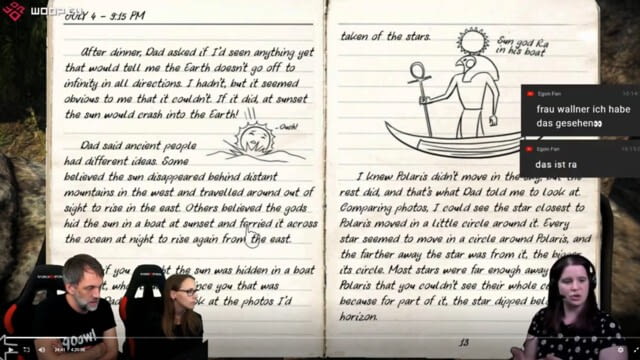 WOOP.EU
JULY 4 - 9:15 PM
After dinner, Dad asked if I'd seen anything yet
that would tell me the Earth doesn't go off to
infinity in all directions. I hadn't, but it seemed
obvious to me that it couldn't. If it did, at sunset
the sun would crash into the Earth!
- Ouch!
Dad said ancient people
had different ideas. Some
believed the sun disappeared behind distant
mountains in the west and travelled around out of
sight to rise in the east. Others believed the gods
hid the sun in a boat at sunset and ferried it across
the ocean at night to rise again from the east.
if you the sun was hidden in a boat
you was
Dad at the photos I'd
taken of the stars.
Sun god Ra
in his boat
I knew Polaris didn't move in the sky, but the
rest did, and that's what Dad told me to look at.
Comparing photos, I could see the star closest to
Polaris moved in a little circle around it. Every
star seemed to move in a circle around Polaris, and
the farther away the star was from it, the
its circle. Most stars were far enough away
Polaris that you couldn't see their whole
because for part of it, the star dipped
horizon.
13
Egon Fan
frau wallner ich habe
das gesehen👀
Egon Fan
das ist ra